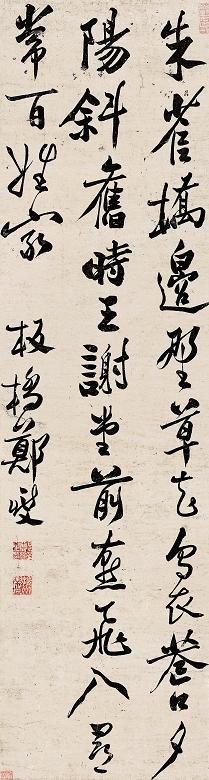 朱雀橋邊野草花烏衣巷口夕
陽斜舊時王謝堂前燕飛入尋
常百姓家
板橋鄭燮